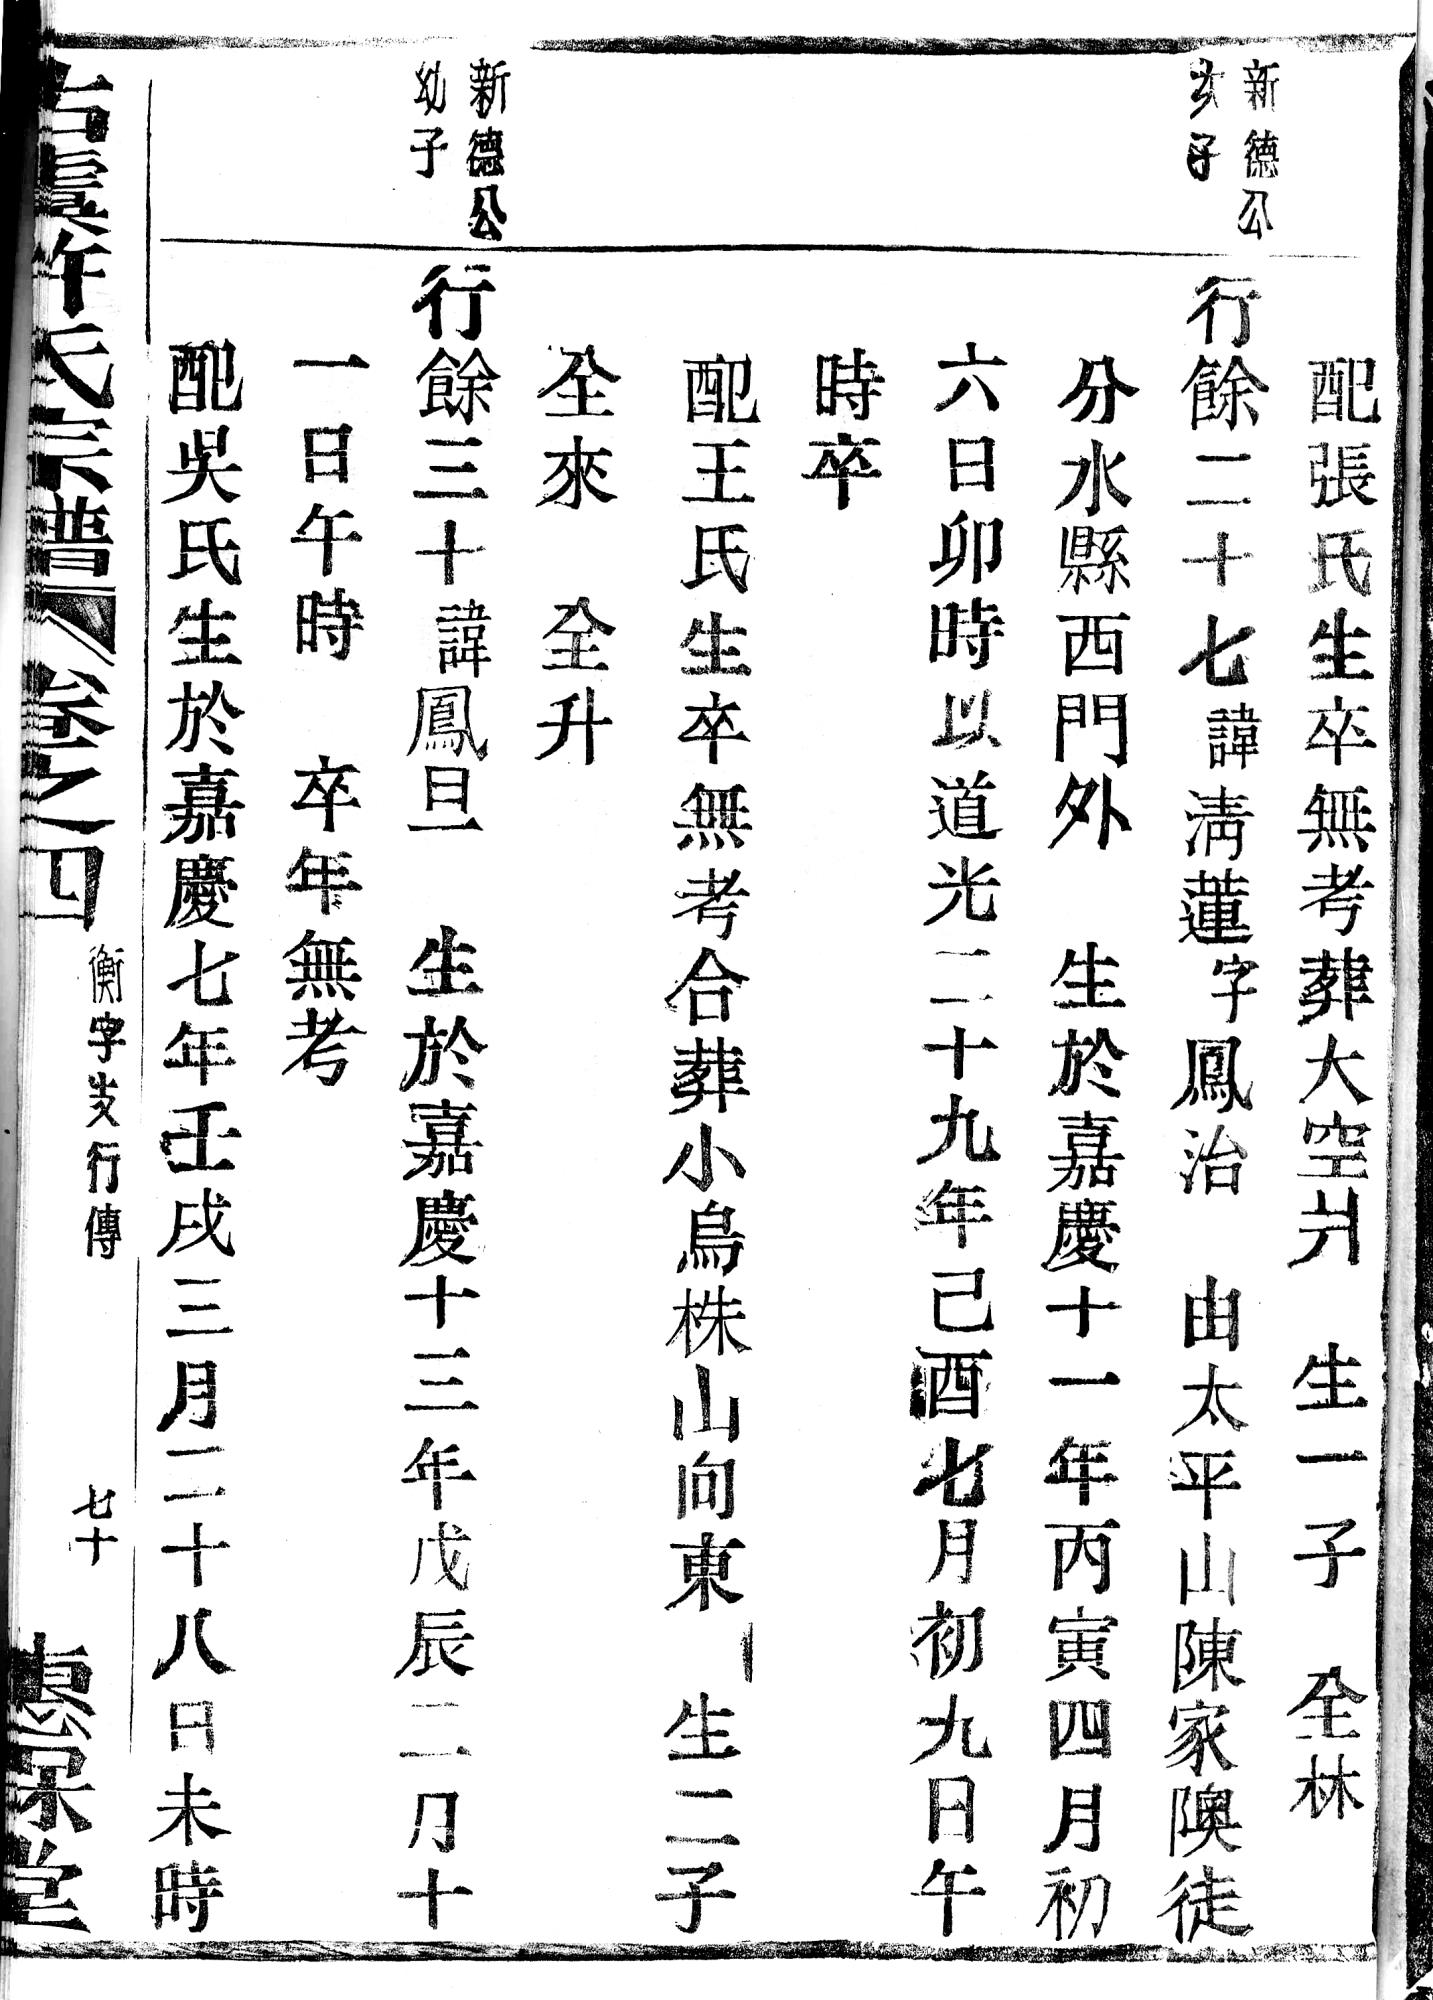 配張氏生卒無考葬大空爿 生一子 全林
新德公
次子
行餘二十七諱淸蓮字鳳治 由太平山陳家隩徒
分水縣西門外 生於嘉慶十一年丙寅四月初
六日卯時以道光二十九年己酉七月初九日午
時卒
配王氏生卒無考合葬小烏株山向東 生二子
全來 全升
新德公
幼子
行餘三十諱鳳旦 生於嘉慶十三年戊辰二月十
一日午時 卒年無考
配吳氏生於嘉慶七年壬戌三月二十八日未時
古虞許氏宗譜 卷之四 衡字支行傳 七十